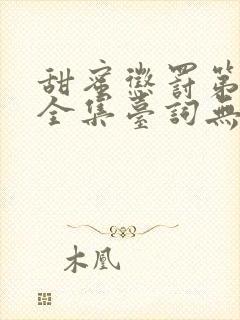 甜蜜懲罰第
全集臺詞無
木凰